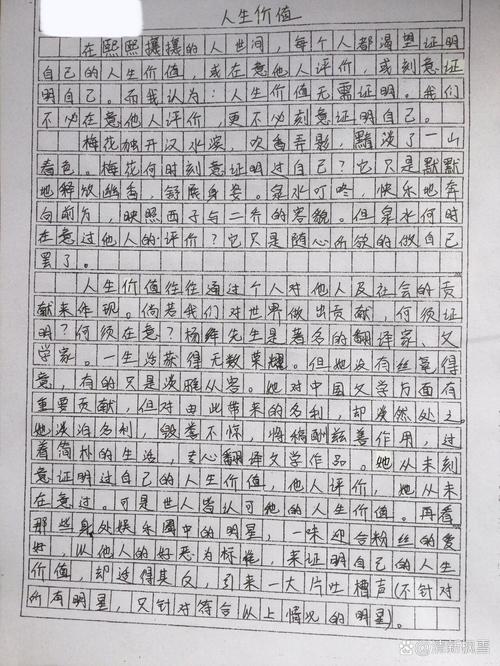 人生价值
在熙熙攘攘的人世间，每个人都渴望证明
自己的人生价值，或在意他人评价，或刻意证
明自己。而我认为：人生价值无需证明。我们
不必在意他人评价，更不必刻意证明自己。
梅花独开汉水滨，吹香弄影，黯淡了一山
春色。梅花何时刻意证明过自己？它只是默默
地释放幽香，舒展身姿。泉水叮咚，快乐地奔
向前方，映照西子与二乔的容貌。但泉水何时
在意过他人的评价？它只是随心所欲的做自己
罢了。
人生价值往往通过个人对他人及社会的贡
献来体现。倘若我们对世界做出贡献，何须证
明？何须在意？杨绛先生是著名的翻译家、文
学家。一生治获得无数荣耀。但她没有丝毫得
意，有的只是淡雅从容。她对中国文学方面有
重要贡献，但对由此带来的名利，却淡然处之。
她淡泊名利，毁誉不惊，将稿酬慈善作用，过
着简朴的生活，专心翻译文学作品。她从未刻
意证明过自己的人生价值，他人评价，她从未
在意过。可是世人皆认可他的人生价值。再看
那些身处娱乐圈中的明星，一味迎合粉丝的爱
好，以他人的好恶为标准，来证明自己的人生
价值，却适得其反，引来一大片吐槽声（不针对
所有明星，只针对符合以上情况的明星）。
清新枫雪